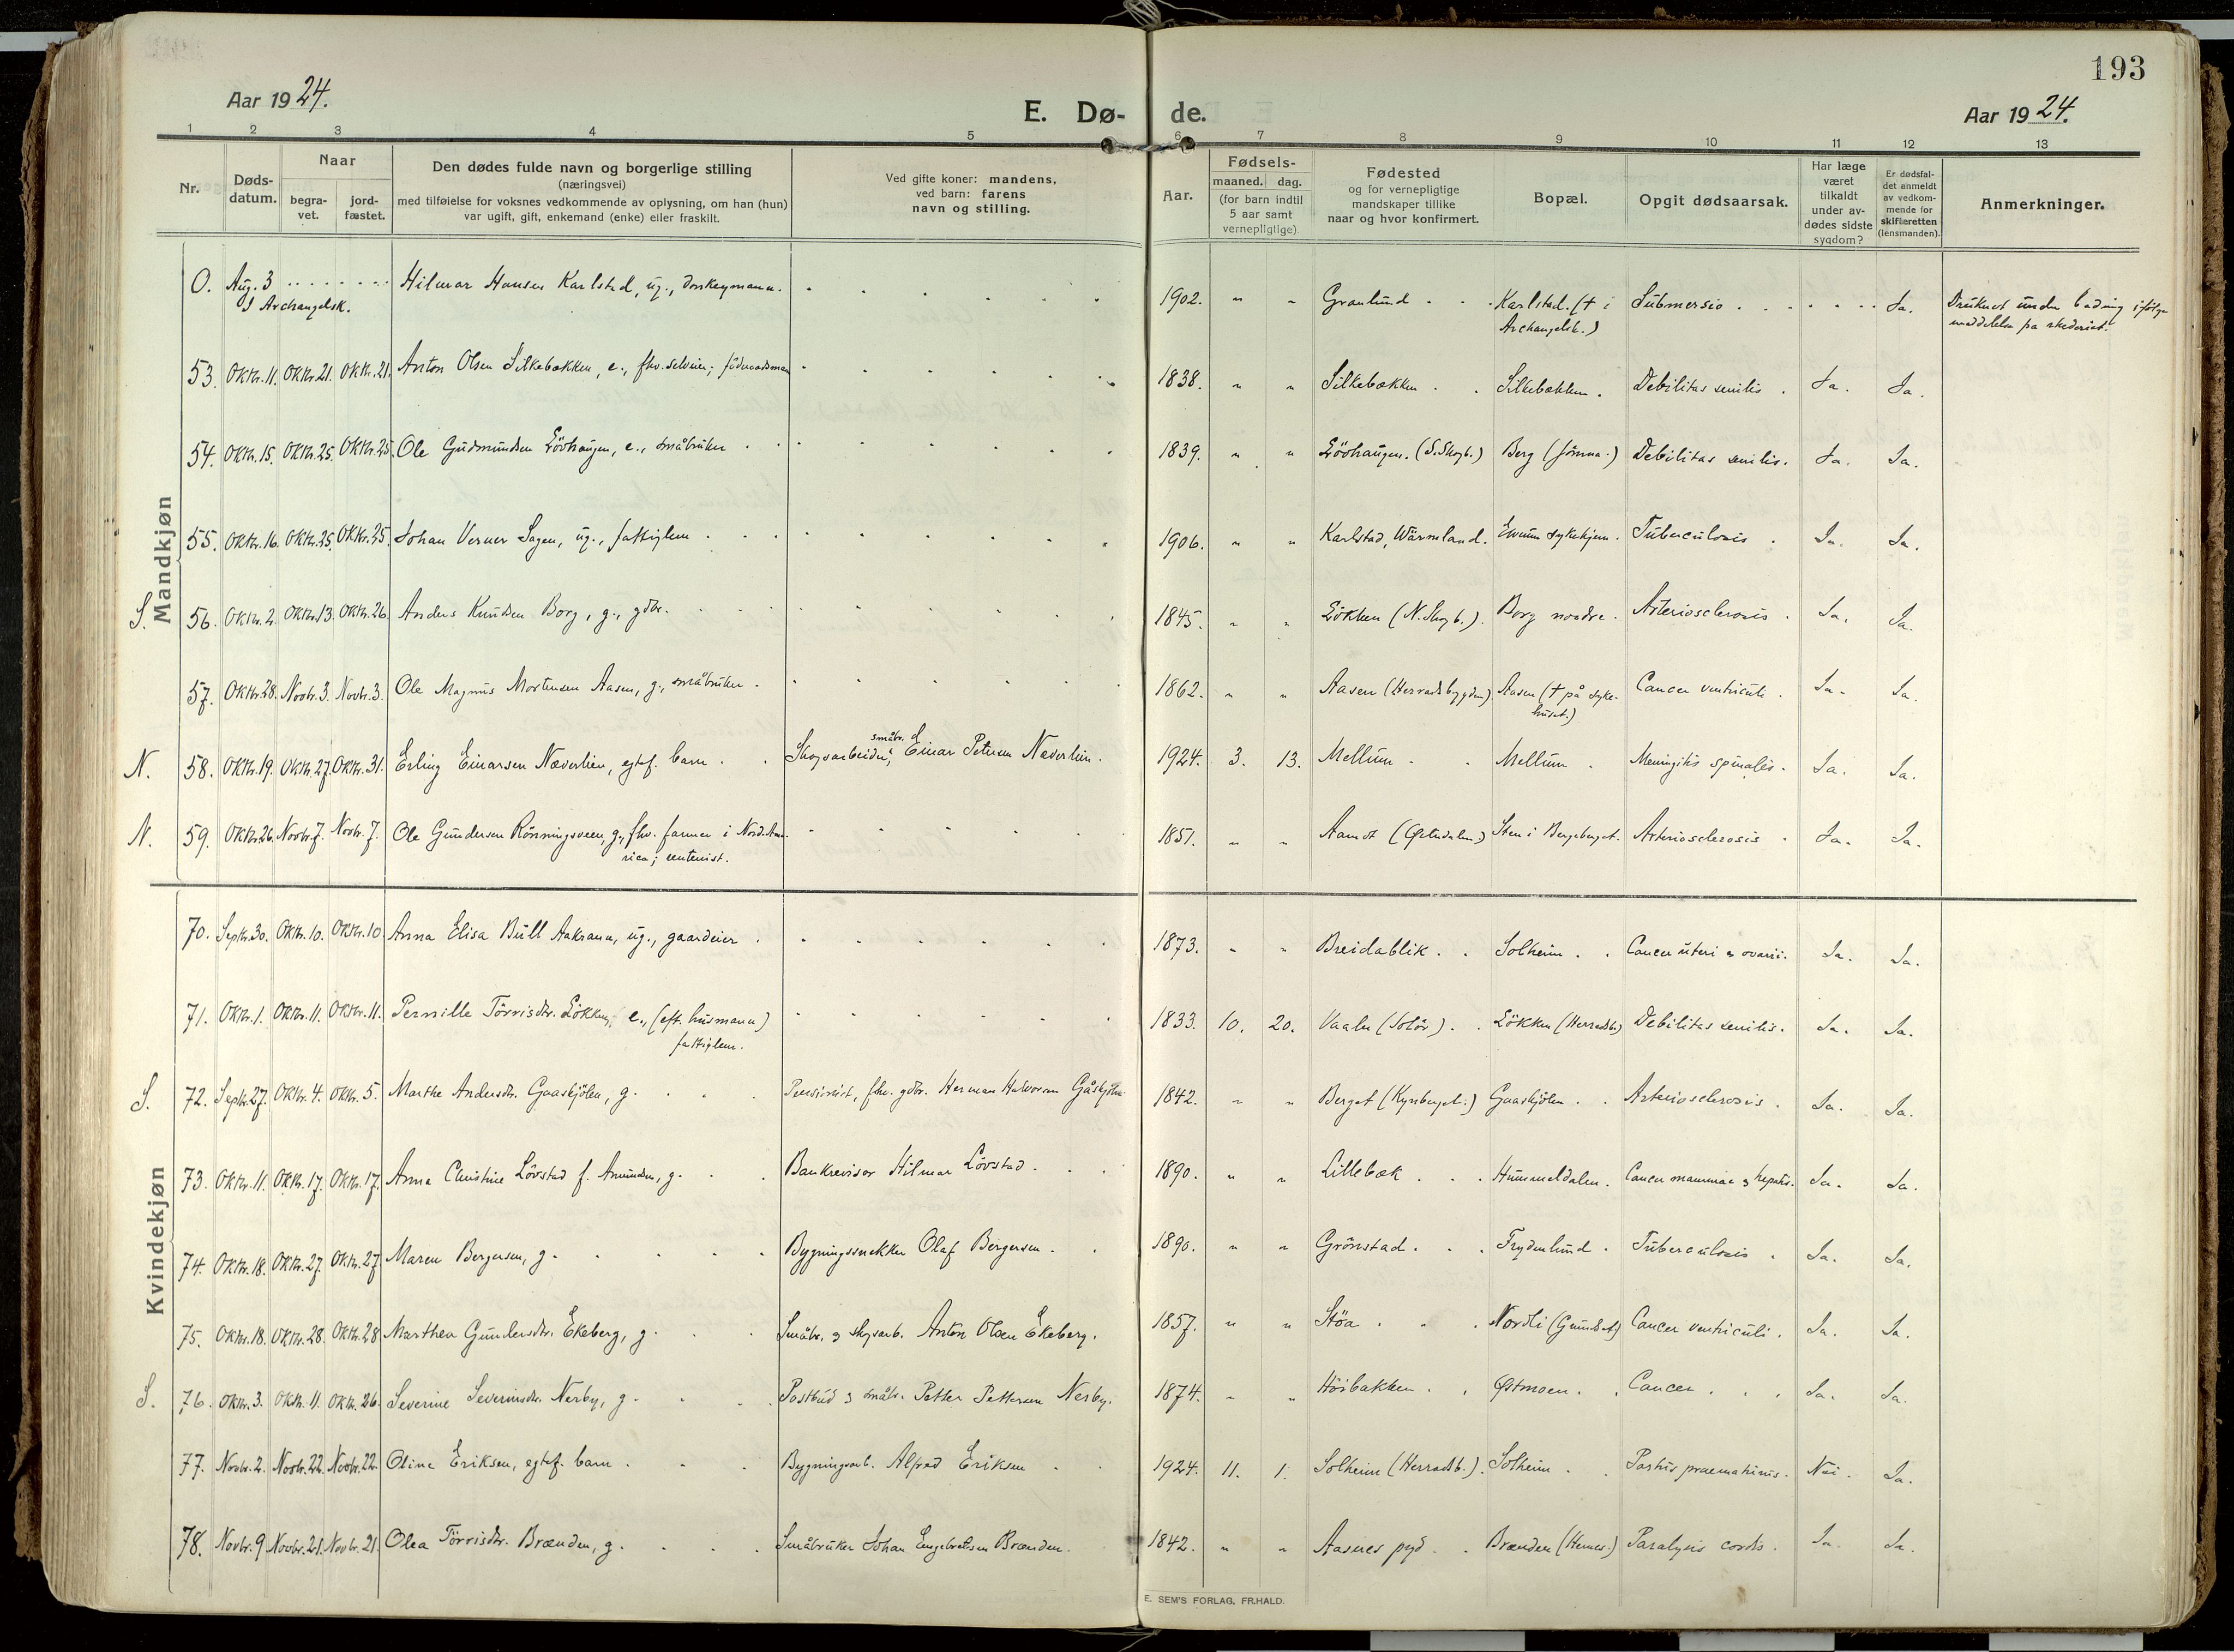 193
Aar 1924.
E. Dø-
de.
Aar 1924.
1 2 3 4 5 6 7 8 9 10 11 12 13
Nr.
Døds-
datum.
Naar
begra-
vet.
jord-
fæstet.
Den dødes fulde navn og borgerlige stilling
(næringsvei)
med tilføielse for voksnes vedkommende av oplysning, om han (hun)
var ugift, gift, enkemand (enke) eller fraskilt.
Ved gifte koner: mandens,
ved barn: farens
navn og stilling.
Aar.
Fødsels-
maaned. dag.
(for barn indtil
5 aar samt
vernepligtige)
Fødested
og for vernepligtige
mandskaper tillike
naar og hvor konfirmert.
Bopæl.
Opgit dødsaarsak.
Har læge
været
tilkaldt
under av-
dødes sidste
sygdom?
Er dødsfal-
det anmeldt
av vedkom-
mende for
skifteretten
(lensmanden).
Anmerkninger.
Mandkjøn
0. Aug. 3 Hilmar Hansen Karlstad, ug., donkeymann. 1902. " " Granlund Karlstad. († i Submersio Ja. Druknet under bading ifølge
I Archangelsk. Archangelsk.) meddelelse fra rhederiet.
53. Oktbr. 11. Oktbr. 21. Oktbr. 21. Anton Olsen Silkebækken, e., fhv. selveier; föderaadsmann 1838. " " Silkebækken Silkebækken. Debilitas senilis. Ja. Ja.
54. Oktbr. 15. Oktbr. 25. Oktbr. 25. Ole Gudmundsen Lövhaugen, e., småbruker 1839. " " Lövhaugen. (S. Skogb.) Berg (Jömna.) Debilitas senilis. Ja. Ja.
55. Oktbr. 16. Oktbr. 25. Oktbr. 25. Johan Verner Sagen, ug., fattiglem 1906. " " Karlstad, Wärmland. Elverum sykehjem. Tuberculosis Ja. Ja.
S. 56. Oktbr. 2. Oktbr. 13. Oktbr. 26. Anders Knudsen Borg, g., gdbr. 1845. " " Lökken (N. Skogb.) Borg nordre. Arteriosclerosis Ja. Ja.
57. Oktbr. 28. Novbr. 3. Novbr. 3. Ole Magnus Mortensen Aasen, g., småbruker. 1862. " " Aasen (Herradsbygden) Aasen († på syke- Cancer ventriculi. Ja. Ja.
huset.)
småbr. &
N. 58. Oktbr. 19. Oktbr. 27. Oktbr. 31. Erling Einarsen Næverlien, egtef. barn Skogsarbeider, Einar Petersen Næverlien. 1924. 3. 13. Mellum Mellum Meningitis spinalis. Ja. Ja.
N. 59. Oktbr. 26. Novbr. 7. Novbr. 7. Ole Gundersen Rönningsveen, g., fhv. farmer i Nord. Ame- 1851. " " Aamot (Østerdalen) Sten i Bergeberget. Arteriosclerosis Ja. Ja.
rica; rentenist.
Kvindekjøn
70. Septbr. 30. Oktbr. 10. Oktbr. 10 Anna Elisa Bull Aakrann, ug., gaardeier 1873. " " Breidablik Solheim Cancer uteri & ovarii. Ja. Ja.
71. Oktbr. 1. Oktbr. 11. Oktbr. 11. Pernille Törrisdtr. Lökken, e., (eft. husmann) 1833. 10. 20. Vaaler (Solör) Lökken (Herradsb.) Debilitas senilis. Ja. Ja.
fattiglem.
S. 72. Septbr. 27. Oktbr. 4. Oktbr. 5. Marthe Andersdtr. Gaaskjölen, g. Pensionist, fhv. gdbr. Herman Halvorsen Gåskjölen 1842. " " Berget (Kynberget.) Gaaskjölen Arteriosclerosis. Ja. Ja.
73. Oktbr. 11. Oktbr. 17. Oktbr. 17. Anna Christine Lövstad f. Amundsen, g. Bankrevisor Hilmar Lövstad. 1890. " " Lillebæk Hummeldalen. Cancer mammae & hepatis. Ja. Ja.
74. Oktbr. 18. Oktbr. 27. Oktbr. 27 Maren Bergersen, g. Bygningssnekker Olaf Bergersen. 1890. " " Grönstad Frydenlund. Tuberculosis Ja. Ja.
75. Oktbr. 18. Oktbr. 28. Oktbr. 28 Marthea Gundersdtr. Ekeberg, g. Småbr. & skogsarb. Anton Olsen Ekeberg. 1857. " " Stöa Nordli (Grundset) Cancer ventriculi. Ja. Ja.
S. 76. Oktbr. 3. Oktbr. 11. Oktbr. 26. Severine Severinsdtr. Nerby, g. Postbud & småbr. Petter Pettersen Nerby. 1874. " " Höibakken Østmoen. Cancer Ja. Ja.
77. Novbr. 2. Novbr. 22. Novbr. 22. Oline Eriksen, egtef. barn Bygningsarb. Alfred Eriksen 1924. 11. 1. Solheim (Herradsb.) Solheim Partus praematurus. Nei. Ja.
78. Novbr. 9 Novbr. 21. Novbr. 21. Olea Törrisdtr. Brænden, g. Småbruker Johan Engebretsen Brænden. 1842. " " Aasnes pgd. Brænden (Hernes.) Paralysis cordis. Ja. Ja.
E. SEM'S FORLAG, FR.HALD.